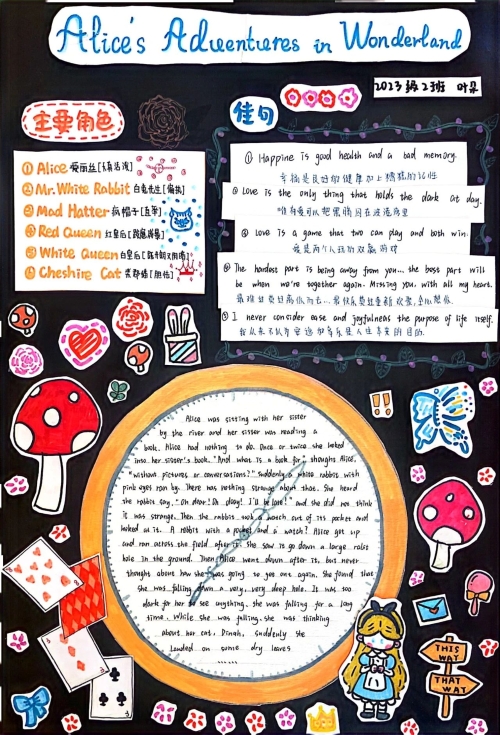 Alice's Adventures in Wonderland
2023级2班 叶朵
主要角色
佳句
① Alice 爱丽丝
② Mr. White Rabbit 白兔先生
③ Mad Hatter 疯帽子
④ Red Queen 红皇后
⑤ White Queen 白皇后
⑥ Cheshire Cat
① Happine is good health and a bad memory.
幸福是良好的健康加上糟糕的记性
② Love is the only thing that holds the dark at day.
唯有爱可以把黑暗
③ Love is a game that two can play and both win.
爱是两个人玩的双赢游戏
④ The hardest part is being away from you... the best part will
be when we're together again. Missing you, with all my heart.
⑤ I never consider ease and joyfulness the purpose of life itself.
我从来不认为安逸和享乐是人生本来的目的.
Alice was sitting with her sister
by the river and her sister was reading a
book. Alice had nothing to do. Once or twice she looked
into her sister's book. "And what is a book for," thoughs Alice,
"without pictures or conversations?" Suddenly a white rabbit with
pink eyes ran by. There was nothing strange about that. She heard
the rabbit say, "Oh dear! Oh dear! I'll be late!" and she did not think
it was strange. Then the rabbit took a watch out of its pocket and
looked at it. A rabbit with a pocket and a watch? Alice got up
and ran across the field after it. She saw it go down a large rabbit
hole in the ground. Then Alice went down after it, but never
thoughs about how she was going to get out again. She found that
she was falling down a very, very deep hole. It was too
dark for her to see anything. She was falling for a long
time. While she was falling, she was thinking
about her cat, Dinah. Suddenly she
landed on some dry leaves
......
THIS WAY
THAT WAY